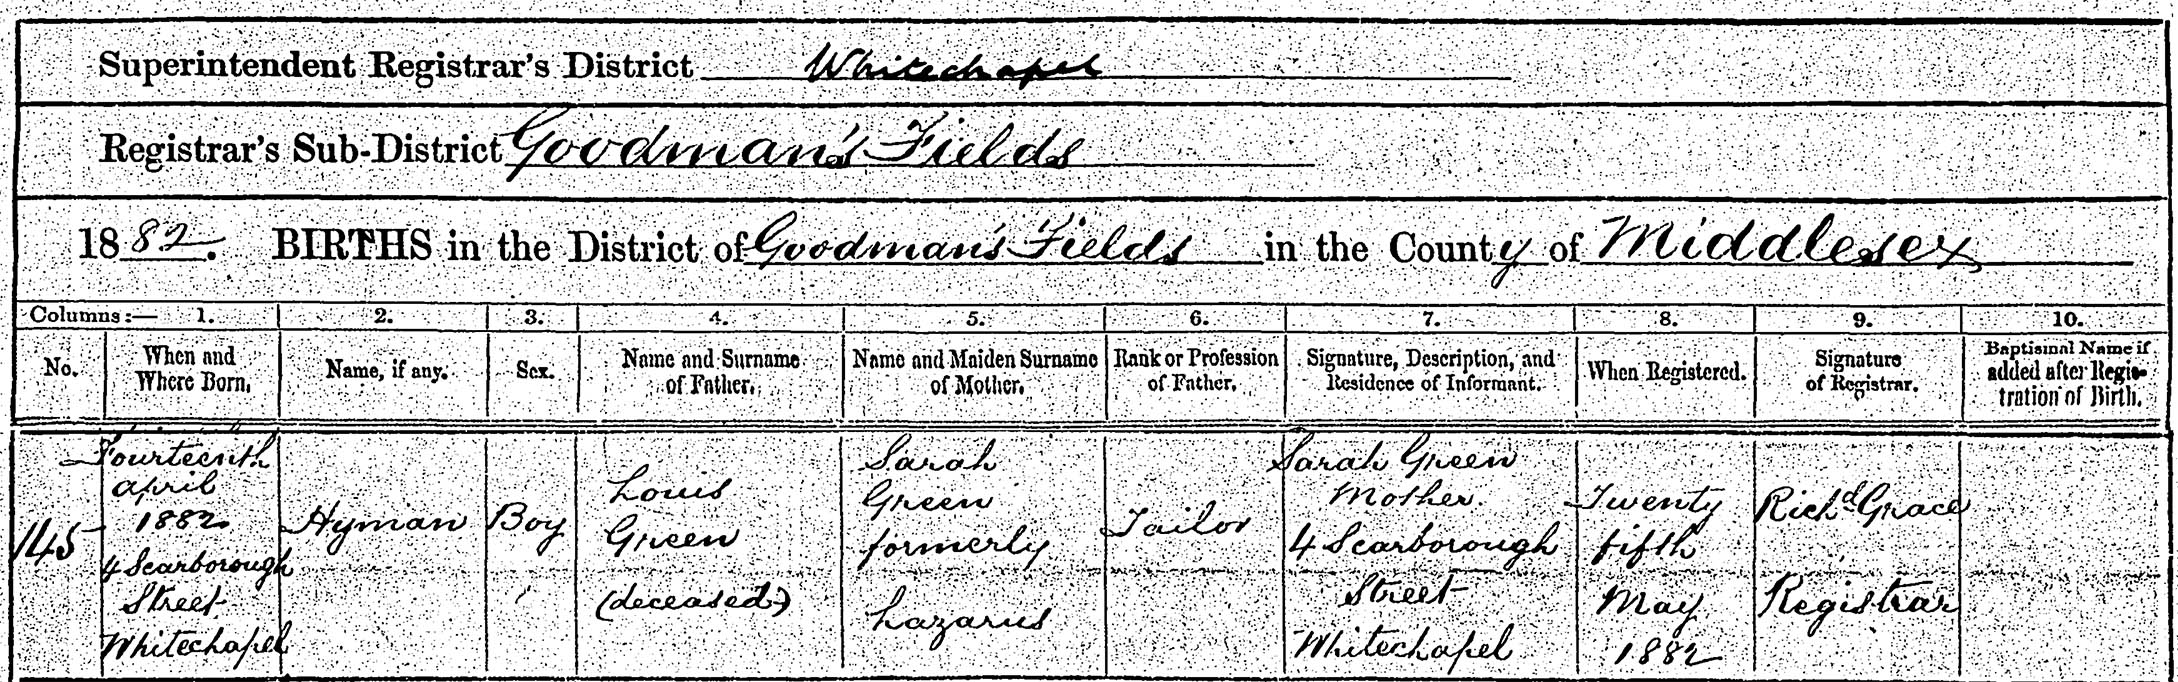 Superintendent Registrar's District Whitechapel
Registrar's Sub-District Goodman's Fields
1882. BIRTHS in the District of Goodman's Fields in the County of Middlesex
Columns:— 1. 2. 3. 4. 5. 6. 7. 8. 9. 10.
No.
When and
Where Born.
Name, if any.
Sex.
Name and Surname
of Father.
Name and Maiden Surname
of Mother.
Rank or Profession
of Father.
Signature, Description, and
Residence of Informant.
When Registered.
Signature
of Registrar.
Baptismal Name if
added after Regis-
tration of Birth.
145
Fourteenth
April
1882
4 Scarborough
Street
Whitechapel
Hyman
Boy
Louis
Green
(deceased)
Sarah
Green
formerly
Lazarus
Tailor
Sarah Green
Mother
4 Scarborough
Street
Whitechapel
Twenty
fifth
May
1882
Richd Grace
Registrar